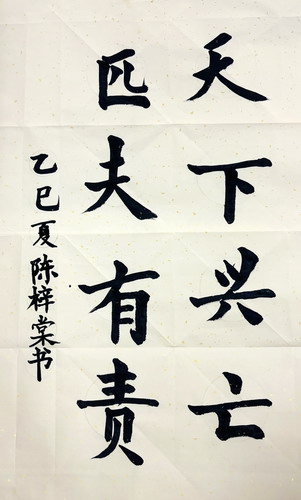 天下兴亡
匹夫有责
乙巳夏陈梓棠书